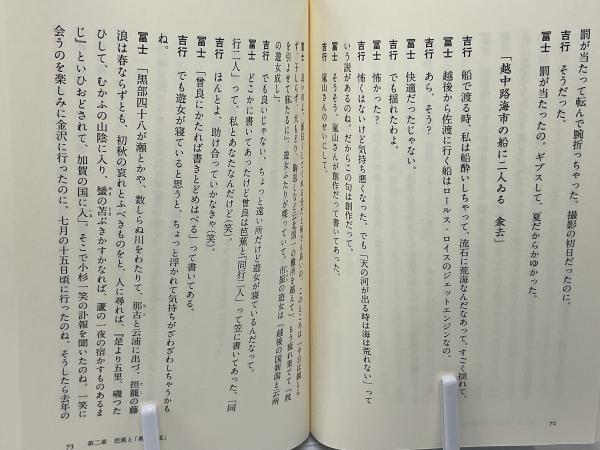 罰が当たって転んで腕折っちゃった。撮影の初日だったのに。
吉行　そうだった。
冨士　罰が当たったの。ギプスして、夏だからかゆかった。
「越中路海市の船に二人ゐる　衾去」
吉行　船で渡る時、私は船酔いしちゃって、流石に荒海なんだなあって、すごく揺れて。
冨士　越後から佐渡に行く船はロールス・ロイスのジェットエンジンなの。
吉行　あら、そう？
冨士　快適だったじゃない。
吉行　でも揺れたわよ。
冨士　怖かった？
吉行　怖くはないけど気持ち悪くなった。でも「天の河が出る時は海は荒れない」って
いう説があるのね。だからこの句は創作だって。
冨士　そうそう。嵐山さんが創作だって書いてあった。
吉行　嵐山さんのせいにして。
を引よせて寐たるに」、遊女ふたりが喋っていて、市振の遊女は「越後の国新潟と云所
の遊女成し」。
吉行　でも良いじゃない、ちょっと遠い所だけど遊女が寝ているんだなって。
冨士　どこかに書いてあったけど曾良は芭蕉と「同行二人」って笠に書いてあった。「同
行二人」って、私とあなたなんだけど（笑）。
吉行　ほんとよ、助け合っていかなきゃ（笑）。
冨士　「曾良にかたれば書きとどめはべる」って書いてある。
吉行　でも遊女が寝ていると思うと、ちょっと浮かれて気持ちがざわざわしちゃうかも
ね。
冨士　「黒部四十八が瀬とかや、数しらぬ川をわたりて、那古と云浦に出づ。担籠の藤
浪は春ならずとも、初秋の哀れとふべきものをと、人に尋れば、『是より五里、磯づた
ひして、むかふの山陰に入り、蜑の苫ぶきかすかなれば、蘆の一夜の宿かすものあるま
じ』といひおどされて、加賀の国に入」。そこで小杉一笑の訃報を聞いたのね。一笑に
会うのを楽しみに金沢に行ったのに。七月の十五日頃に行ったのね。そうしたら去年の
72
73　第二章　芭蕉と「